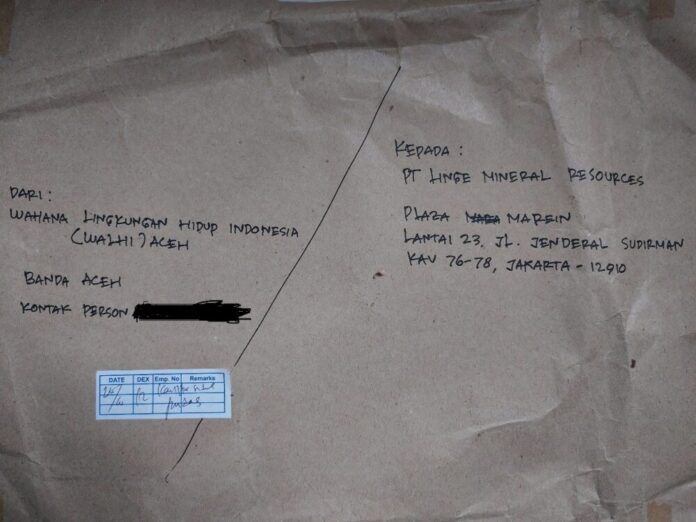 DARI :
WAHANA LINGKUNGAN HIDUP INDONESIA
(WALHI) ACEH
BANDA ACEH
KONTAK PERSON
KEPADA :
PT LINGE MINERAL RESOURCES
PLAZA MAREIN
LANTAI 23. JL. JENDERAL SUDIRMAN
KAV 76-78, JAKARTA - 12910
DATE DEX Emp. No Remarks